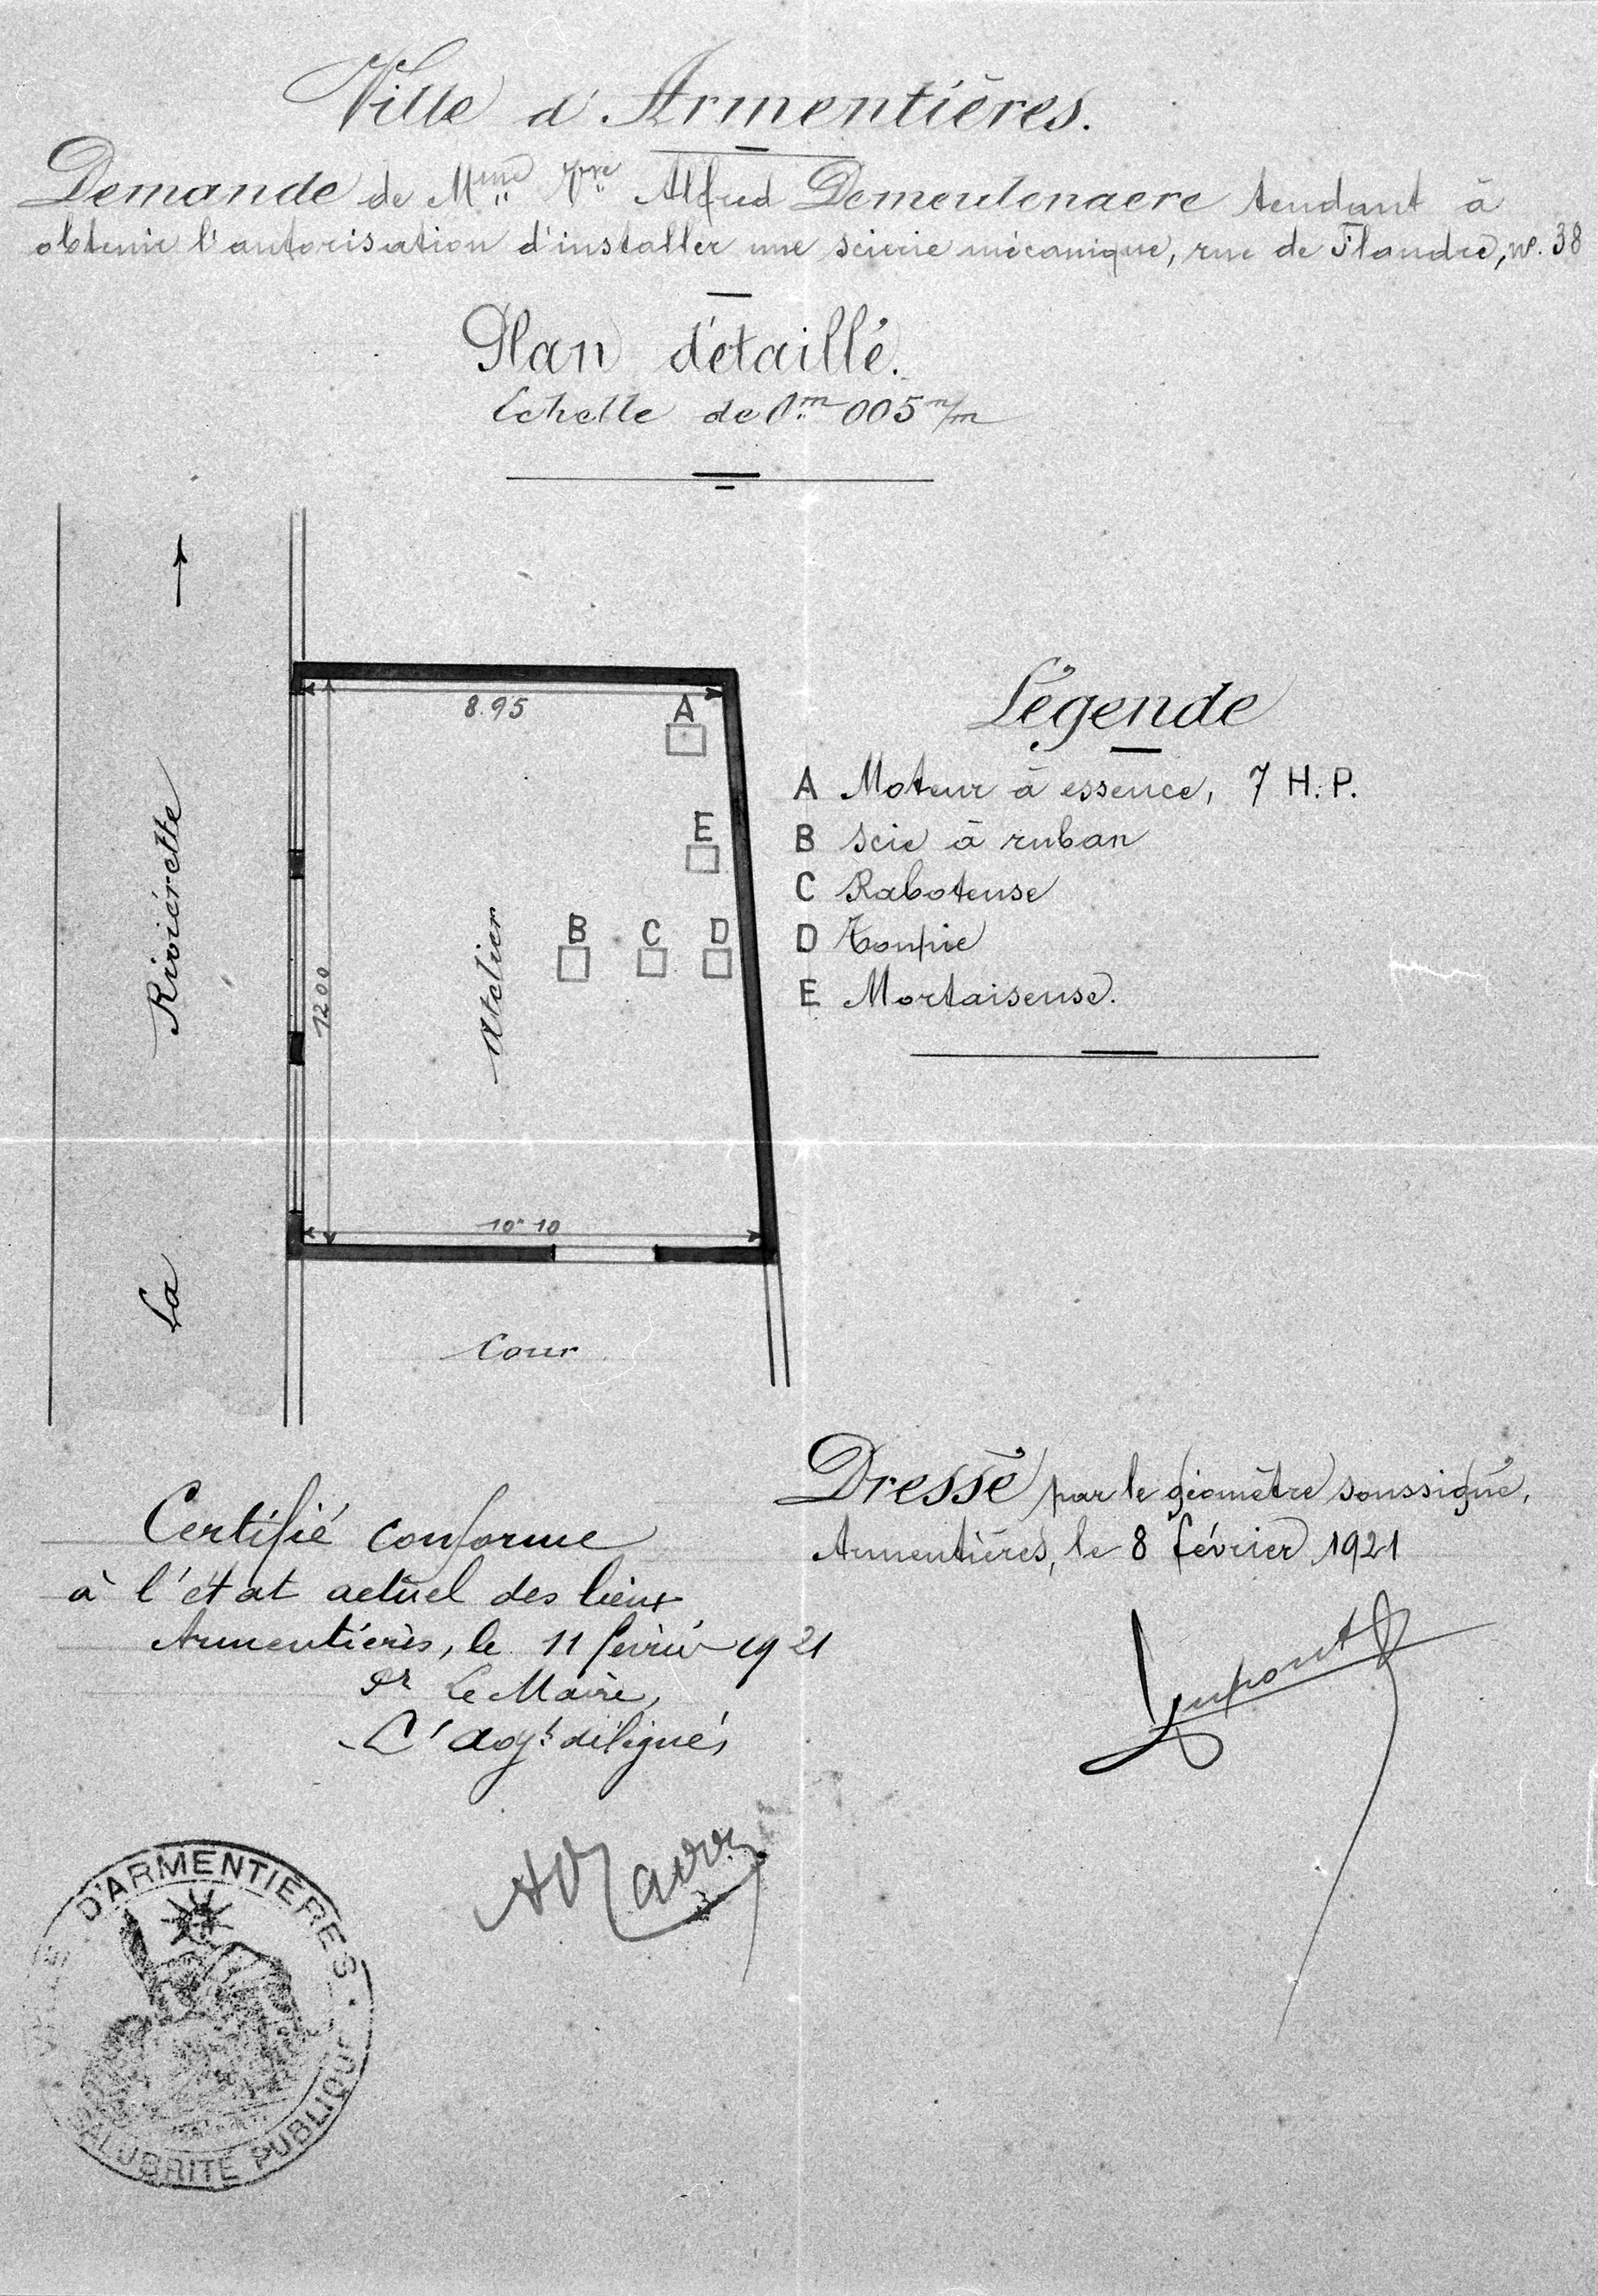 Ville d'Armentières.
Demande de Mme Vve Alfred Demeulenaere tendant à
obtenir l'autorisation d'installer une scierie mécanique, rue de Flandre, n°. 38
Plan détaillé.
Echelle de 0m 005 m/m
8.95
A
E
B C D
12 00
Atelier
10m 10
Cour
La Riviérette
Légende
A Moteur à essence, 7 H.P.
B Scie à ruban
C Raboteuse
D Toupie
E Mortaiseuse.
Dressé par le géomètre soussigné,
Armentières, le 8 février 1921
Dupont
Certifié conforme
à l'état actuel des lieux
Armentières, le 11 février 1921
Pr Le Maire,
L'adjt délégué,
VILLE D'ARMENTIÈRES
SALUBRITÉ PUBLIQUE